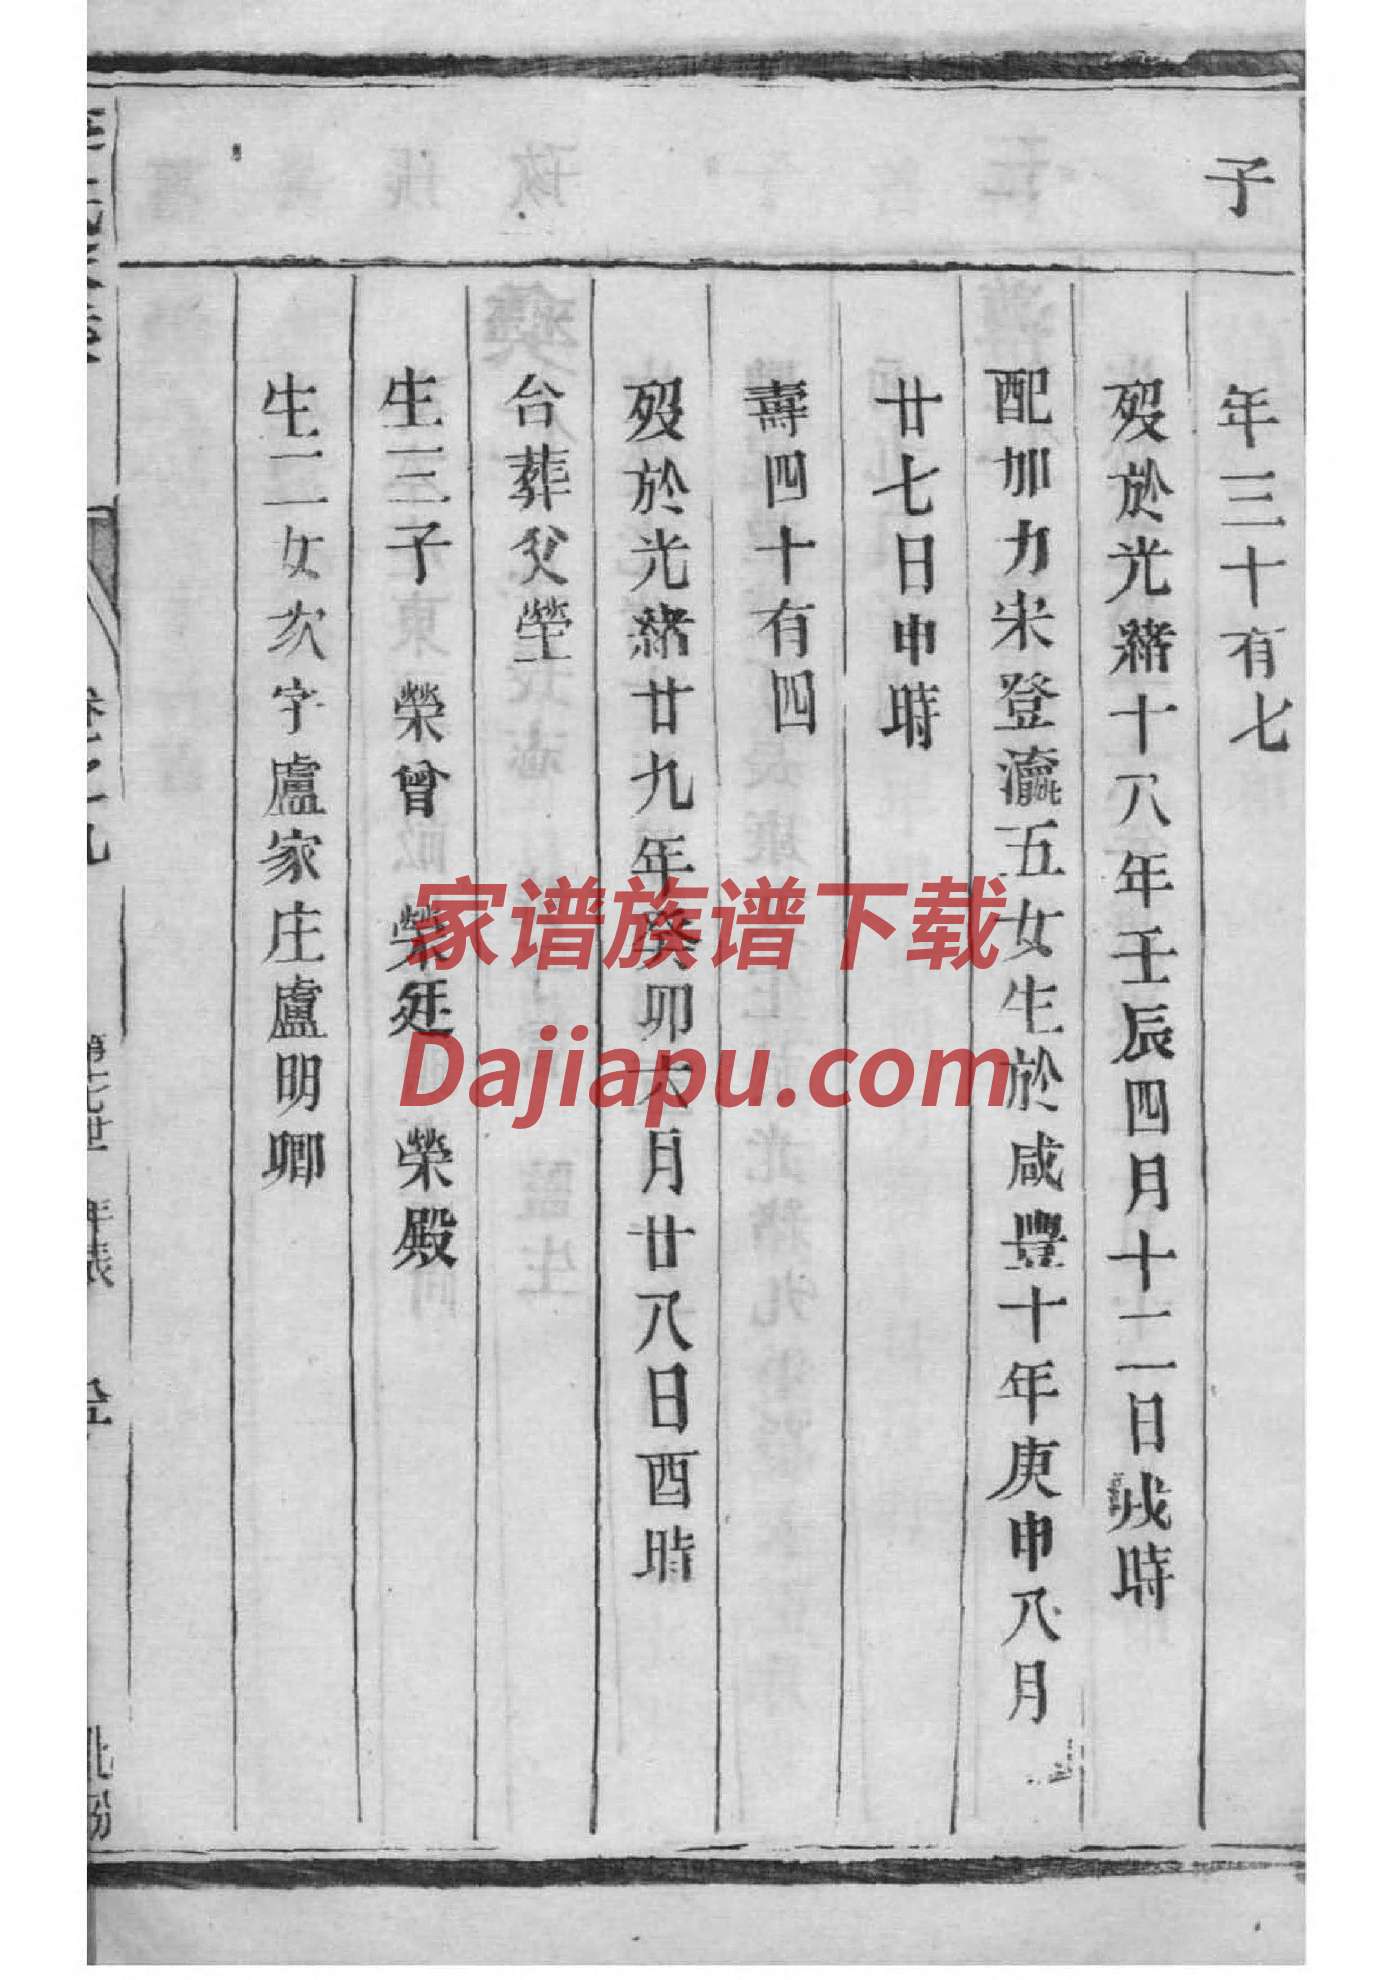 子
年三十有七
歿於光緒十八年壬辰四月十二日戌時
配加力米登瀛五女生於咸豐十年庚申八月
廿七日申時
壽四十有四
歿於光緒廿九年癸卯六月廿八日酉時
台葬父塋
生三子 榮曾 榮廷 榮殿
生二女次字盧家庄盧明卿
卷之九 第七世 年表
家谱族谱下载
Dajiapu.com